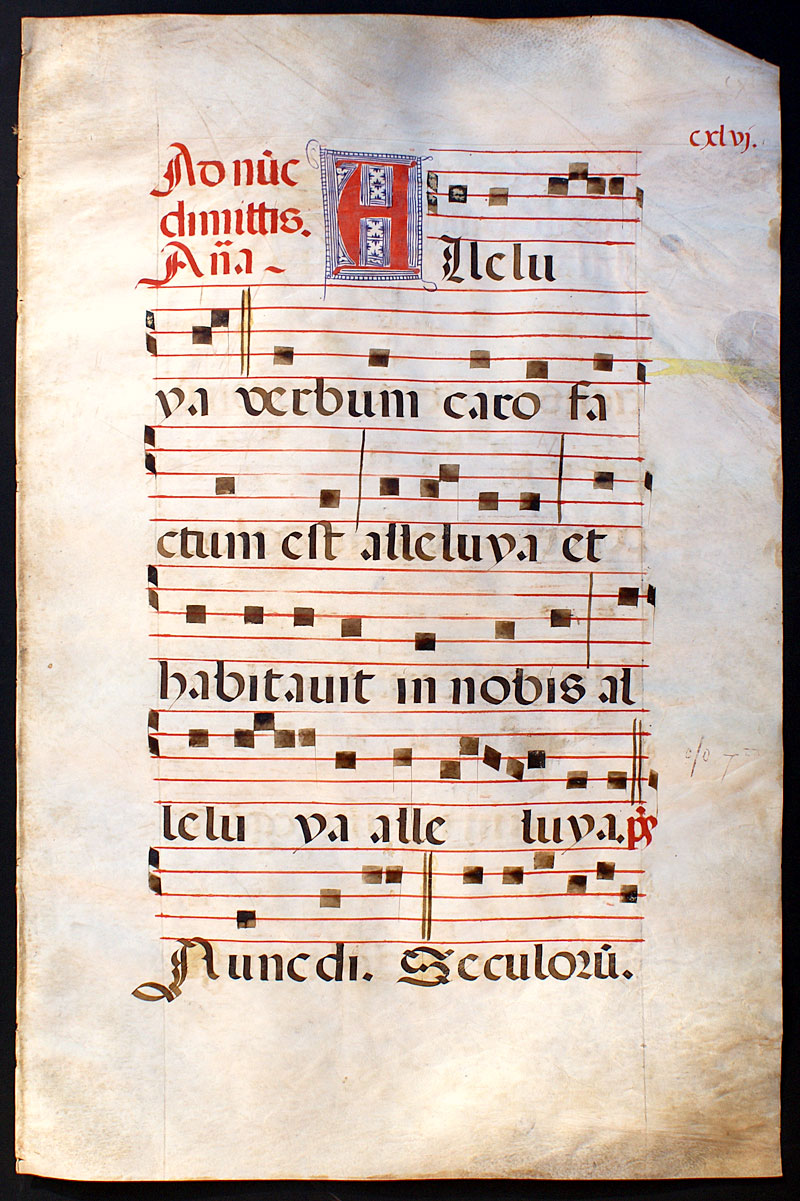 cxlvj.
Ad nūc
dimittis.
Añ̃a
Allelu
ya verbum caro fa
ctum est alleluya et
habitauit in nobis al
lelu ya alle luya. p̄s
Nunc di. Seculorū.